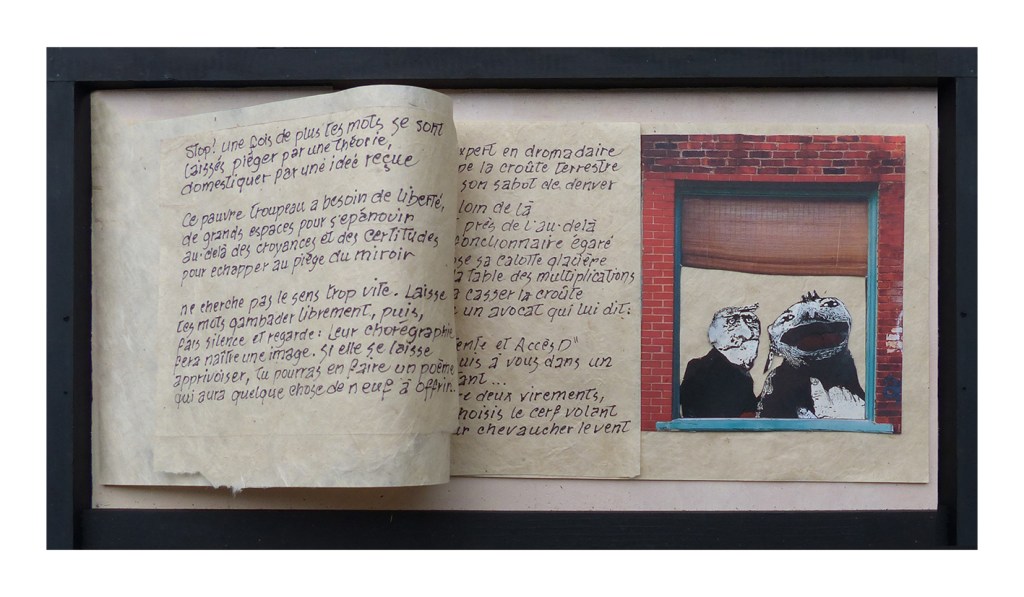 Stop! une fois de plus tes mots se sont
laissés piéger par une théorie,
domestiquer par une idée reçue
Ce pauvre troupeau a besoin de liberté,
de grands espaces pour s'épanouir
au-delà des croyances et des certitudes
pour echapper au piège du miroir
ne cherche pas le sens trop vite. Laisse
tes mots gambader librement, puis,
fais silence et regarde: Leur chorégraphie
fera naître une image. Si elle se laisse
apprivoiser, tu pourras en faire un poème
qui aura quelque chose de neuf à offrir.
xpert en dromadaire
pe la croûte terrestre
son sabot de denver
loin de là
près de l'au-delà
onctionnaire égaré
se sa calotte glacière
la table des multiplications
à casser la croûte
un avocat qui lui dit:
ente et Accès D"
uis à vous dans un
ant...
re deux virements,
hoisis le cerf volant
ur chevaucher le vent